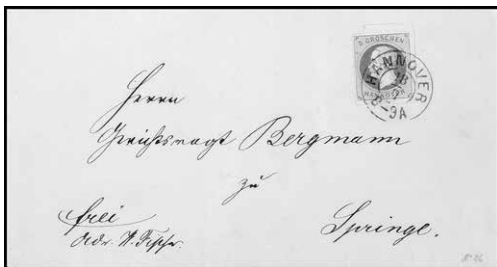 3 GROSCHEN
HANNOVER
HANNOVER
18
2
8-9A
Herrn
Gerichtsvogt Bergmann
zu
Springe.
frei
Adr.